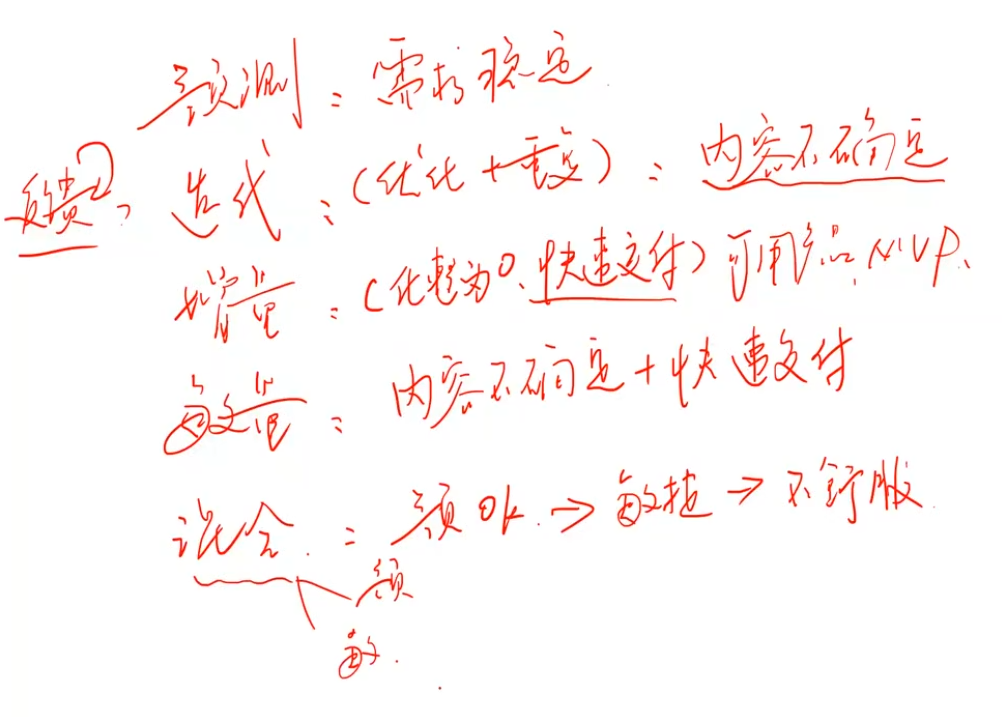 预测：需求稳定
反馈？迭代：（优化+重复）：内容不确定
增量：（化整为0、快速交付）可用产品，MVP、
敏捷：内容不确定+快速交付
混合：预ok.→敏捷→不舒服
预
敏.